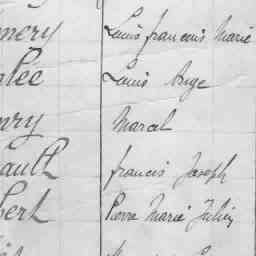 mery Louis francois Marié
lée Louis Ange
nry Marcel
ault francis Joseph
bert Pierre Marié Julien